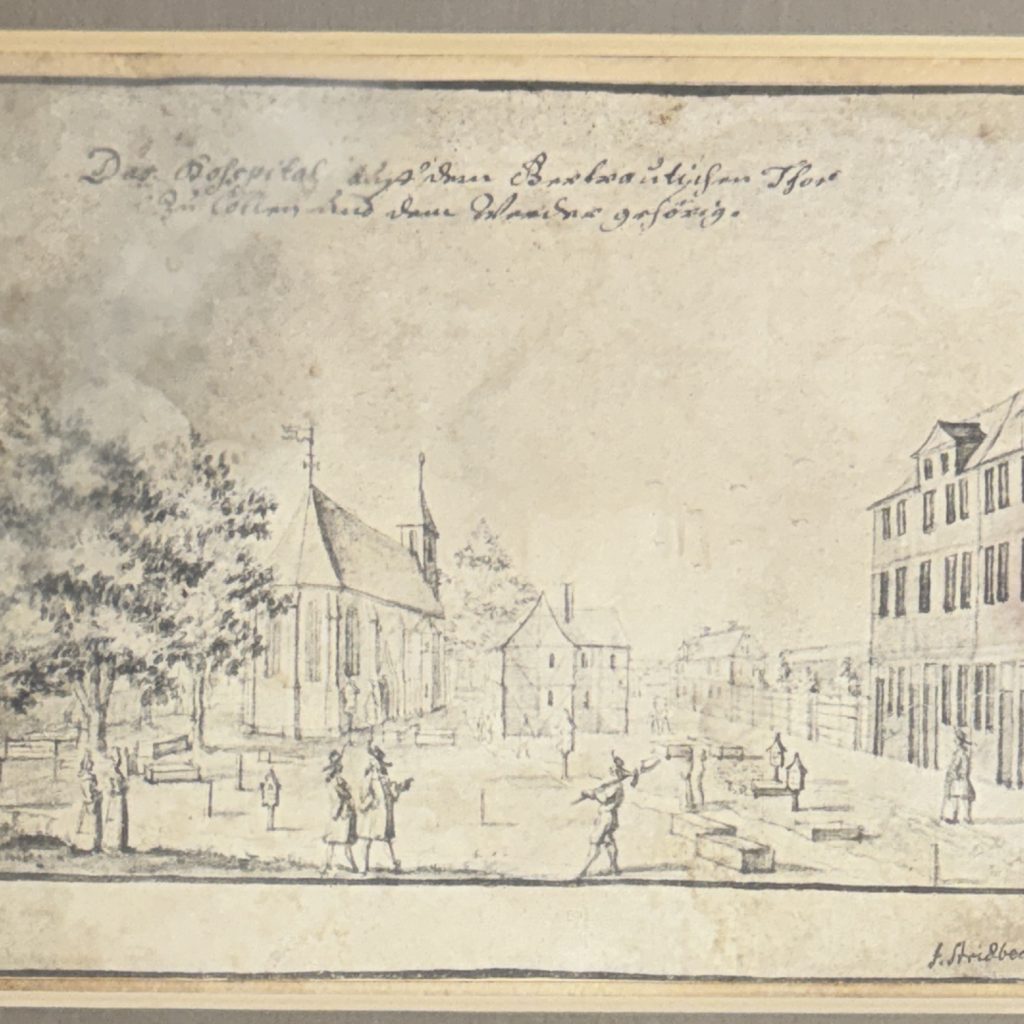 Das Hosspital dem Gertrautischen Thor
Zu Cöllen und dem Werder gehörig.
J. Stridbec